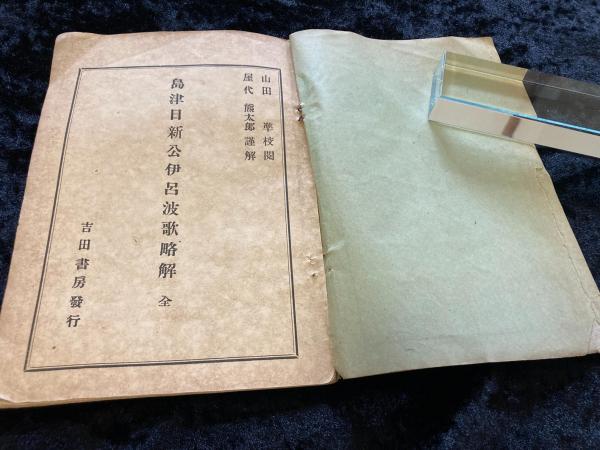 山田 準校閲
屋代 熊太郎謹解
島津日新公伊呂波歌略解 全
吉田書房發行